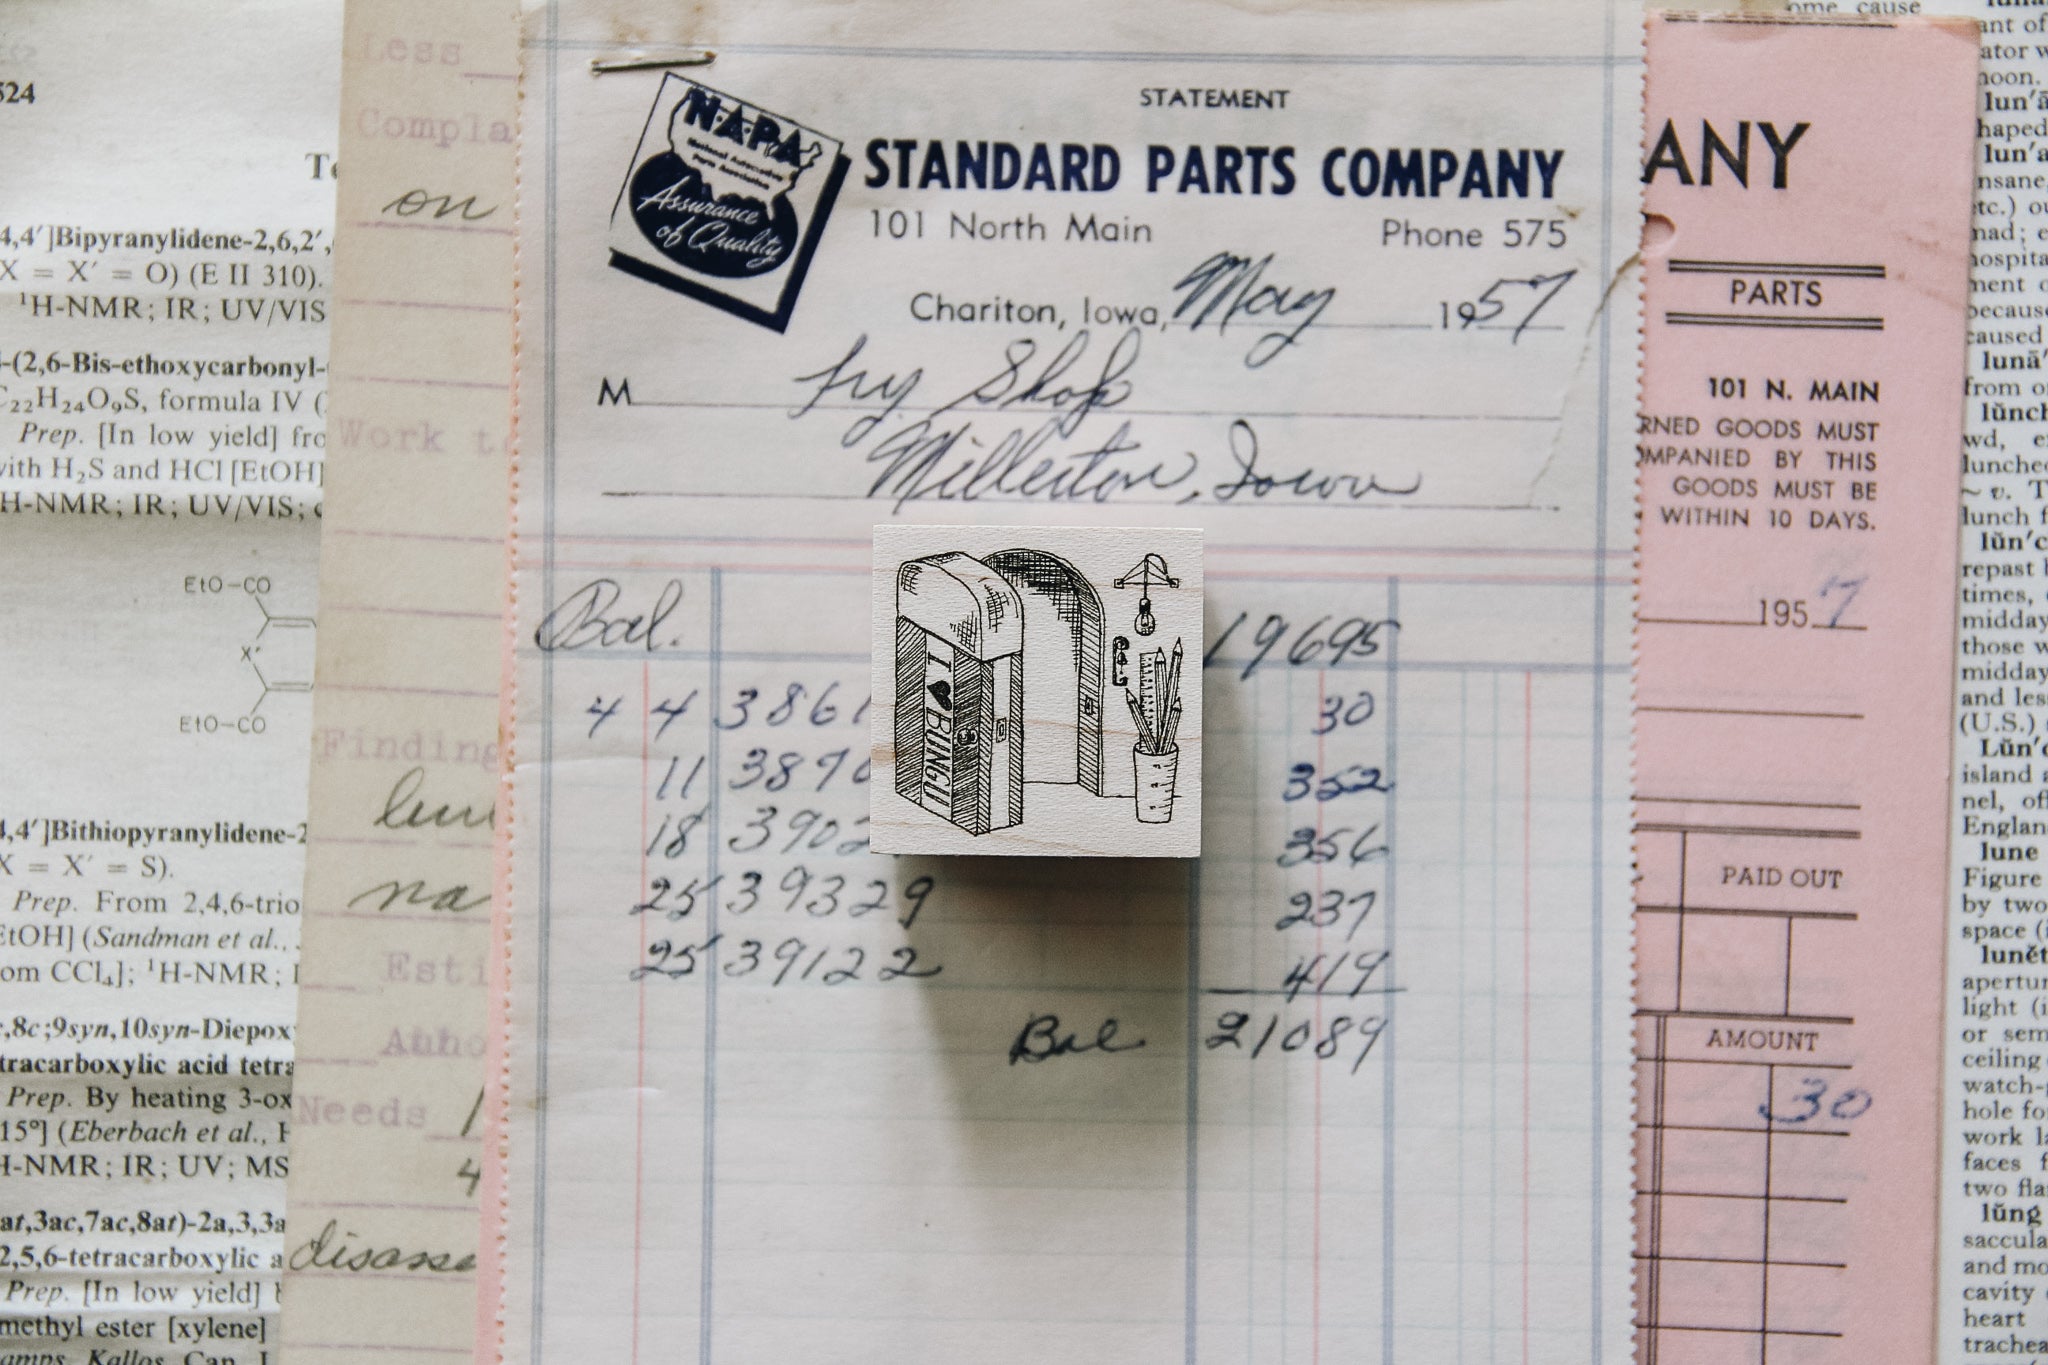 524
4,4′]Bipyranylidene-2,6,2′,
X = X′ = O) (E II 310).
¹H-NMR; IR; UV/VIS
-(2,6-Bis-ethoxycarbonyl-
C₂₂H₂₄O₉S, formula IV (
Prep. [In low yield] fro
with H₂S and HCl [EtOH]
H-NMR; IR; UV/VIS; c
EtO–CO
X′
EtO–CO
4,4′]Bithiopyranylidene-2
X = X′ = S).
Prep. From 2,4,6-trio
EtOH] (Sandman et al.,
om CCl₄]; ¹H-NMR; I
,8c;9syn,10syn-Diepoxy
tracarboxylic acid tetra
Prep. By heating 3-ox
15°] (Eberbach et al., H
H-NMR; IR; UV; MS
at,3ac,7ac,8at)-2a,3,3a
2,5,6-tetracarboxylic a
Prep. [In low yield] b
methyl ester [xylene]
Kallos Can. J
Less
Compla
on
Work to
Finding
na
Esti
Autho
Needs 1
4
disasse
NAPA
National Automotive
Parts Association
Assurance
of Quality
STATEMENT
STANDARD PARTS COMPANY
101 North Main Phone 575
Chariton, Iowa, May 1957
M Fry Shop
Millerton, Iowa
Bal. 19695
4 4 3861 30
11 3870 352
18 3902 356
25 39329 237
25 39122 419
Bal 21089
I ♥ BUNGU
ANY
PARTS
101 N. MAIN
RNED GOODS MUST
OMPANIED BY THIS
GOODS MUST BE
WITHIN 10 DAYS.
1957
PAID OUT
AMOUNT
30
ome cause
ant of
ator w
moon.
lun′ā
haped
lun′a
nsane,
etc.) ou
mad; e
hospita
ment o
because
caused
lunā′
from o
lŭnch
wd, e
lunche
~ v. T
lunch f
lŭn′c
repast b
times,
midday
those w
midday
and les
(U.S.)
Lŭn′d
island a
nel, of
England
lune
Figure
by two
space (i
lunĕt
apertur
light (i
or sem
ceiling
watch-g
hole fo
work la
faces f
two fla
lŭng
saccula
and mo
cavity
heart
trachea